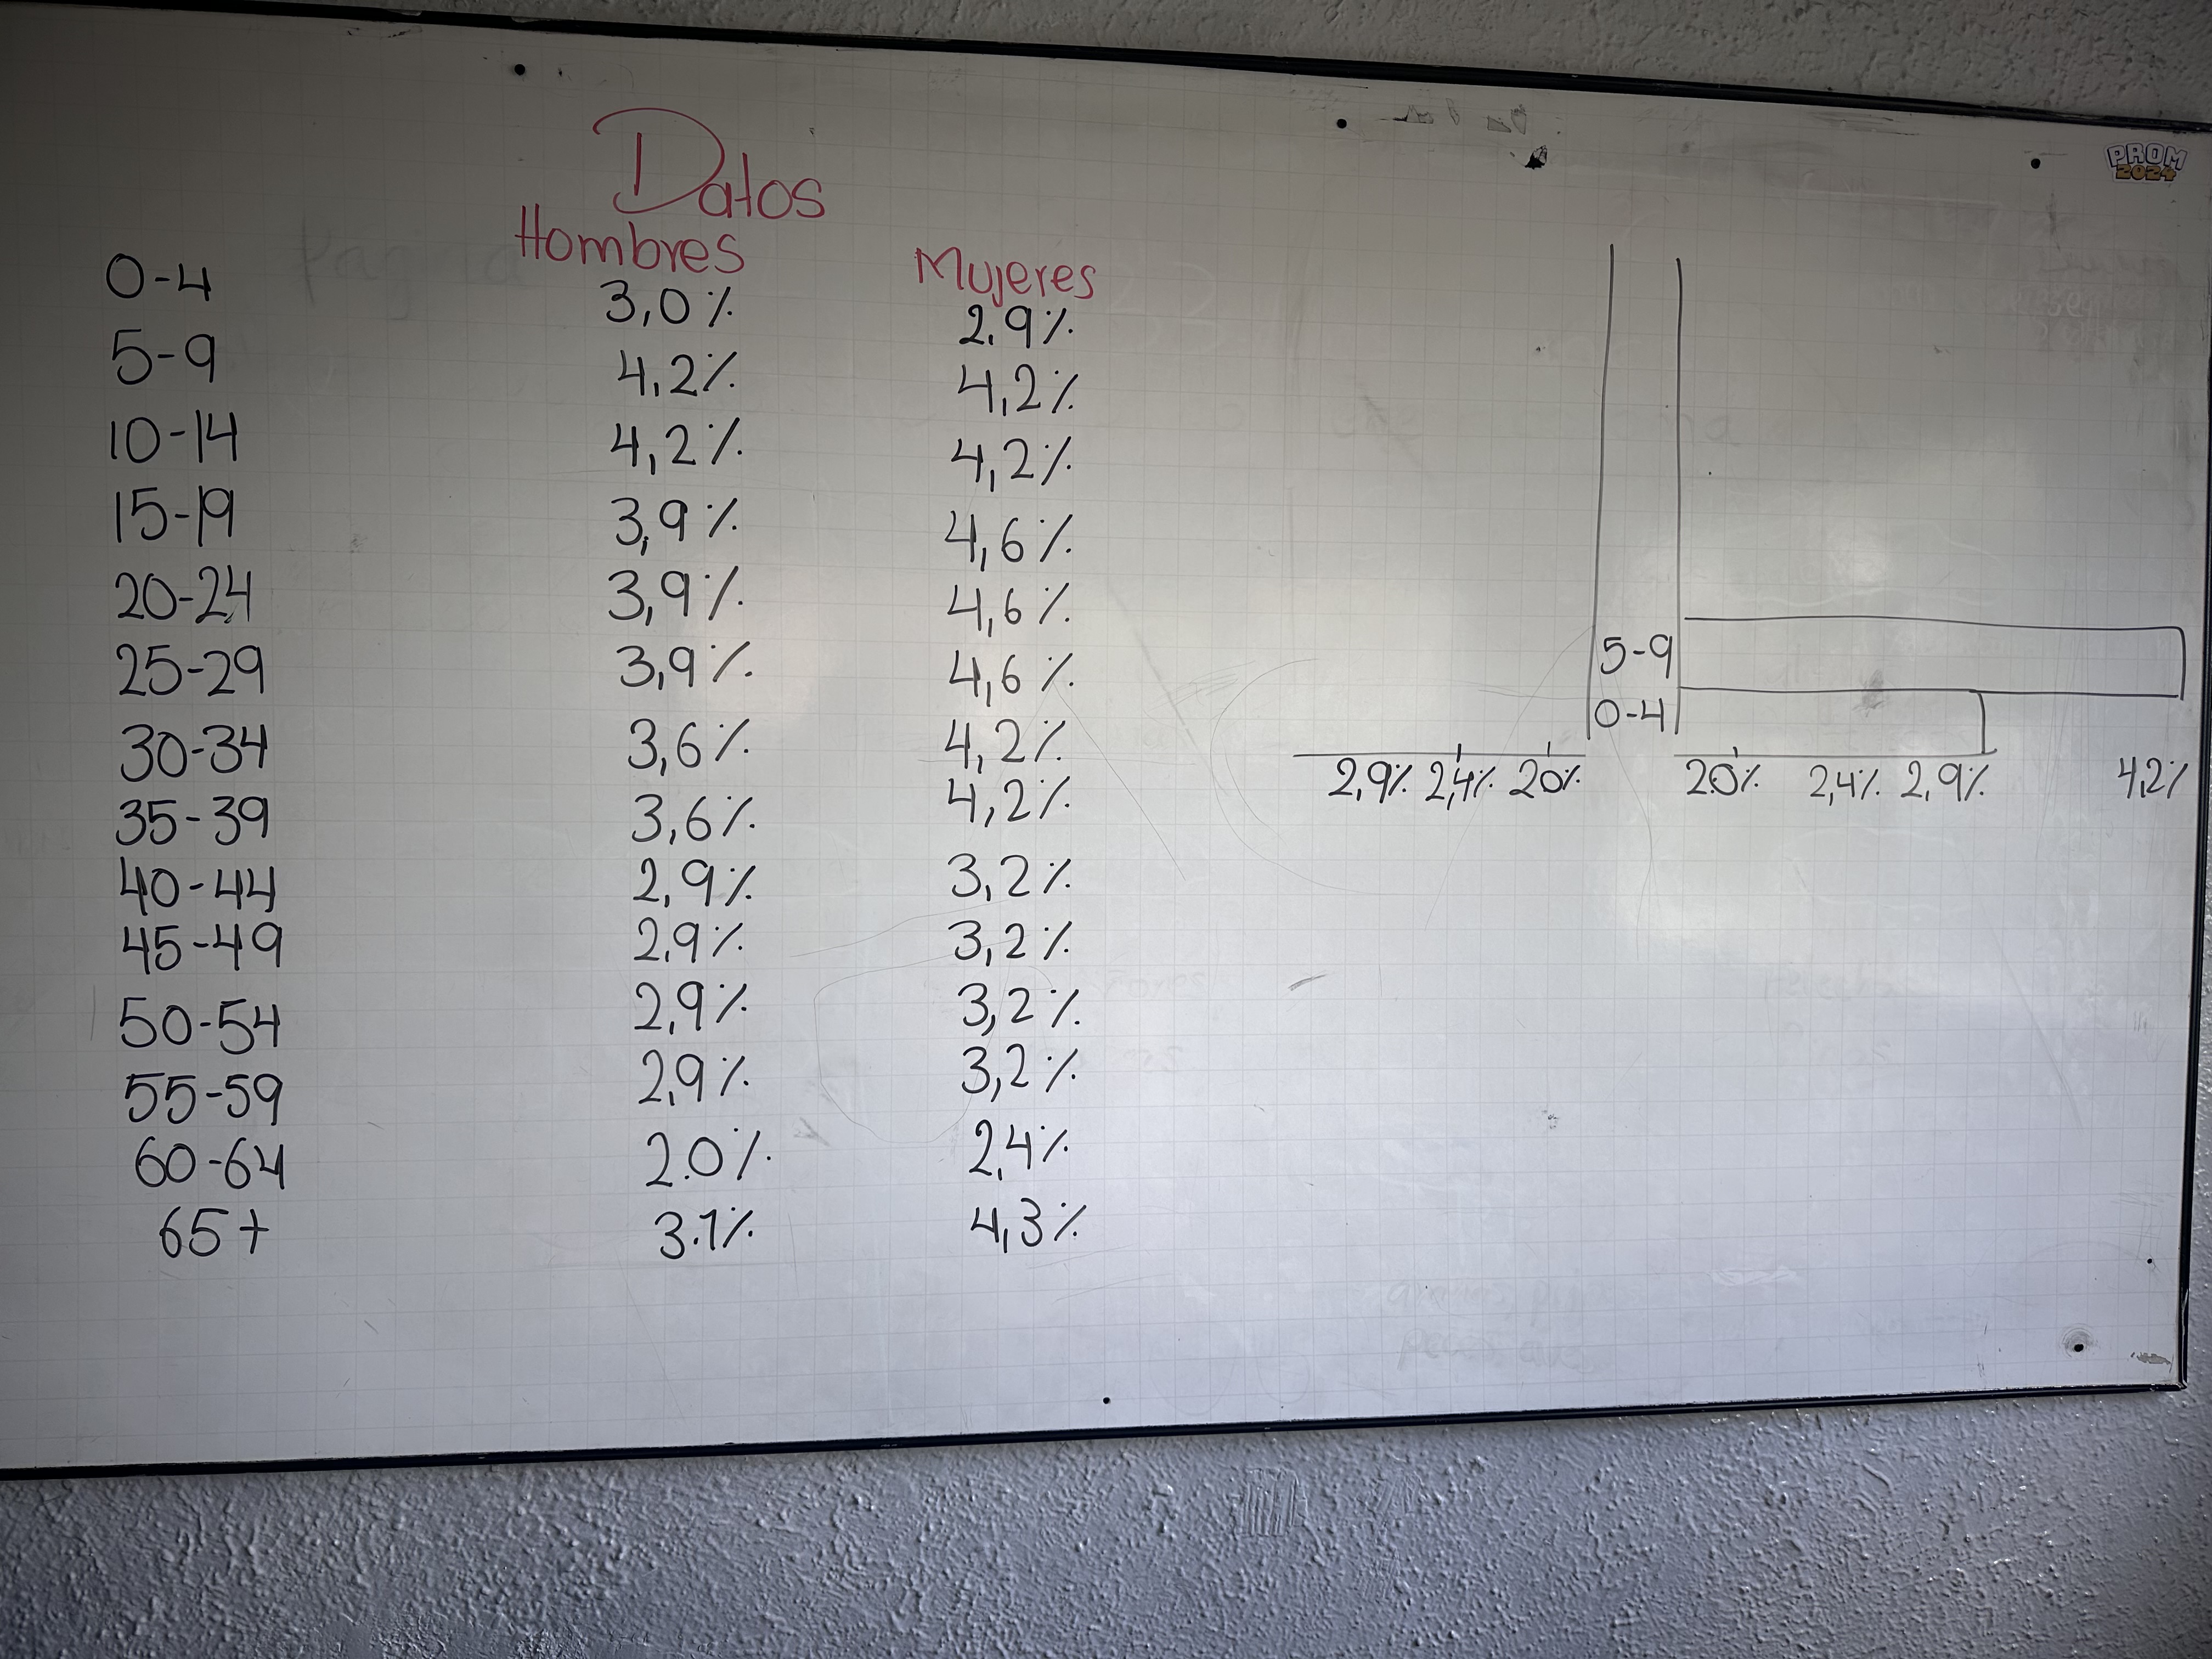 Datos
Hombres Mujeres
0-4 3,0% 2.9%
5-9 4,2% 4,2%
10-14 4,2% 4,2%
15-19 3,9% 4,6%
20-24 3,9% 4,6%
25-29 3,9% 4,6%
30-34 3,6% 4,2%
35-39 3,6% 4,2%
40-44 2,9% 3,2%
45-49 2,9% 3,2%
50-54 2,9% 3,2%
55-59 2,9% 3,2%
60-64 2.0% 2,4%
65+ 3.1% 4,3%
PROM
2024
5-9
0-4
2,9% 2,4% 2.0% 2.0% 2,4% 2,9% 4,2%